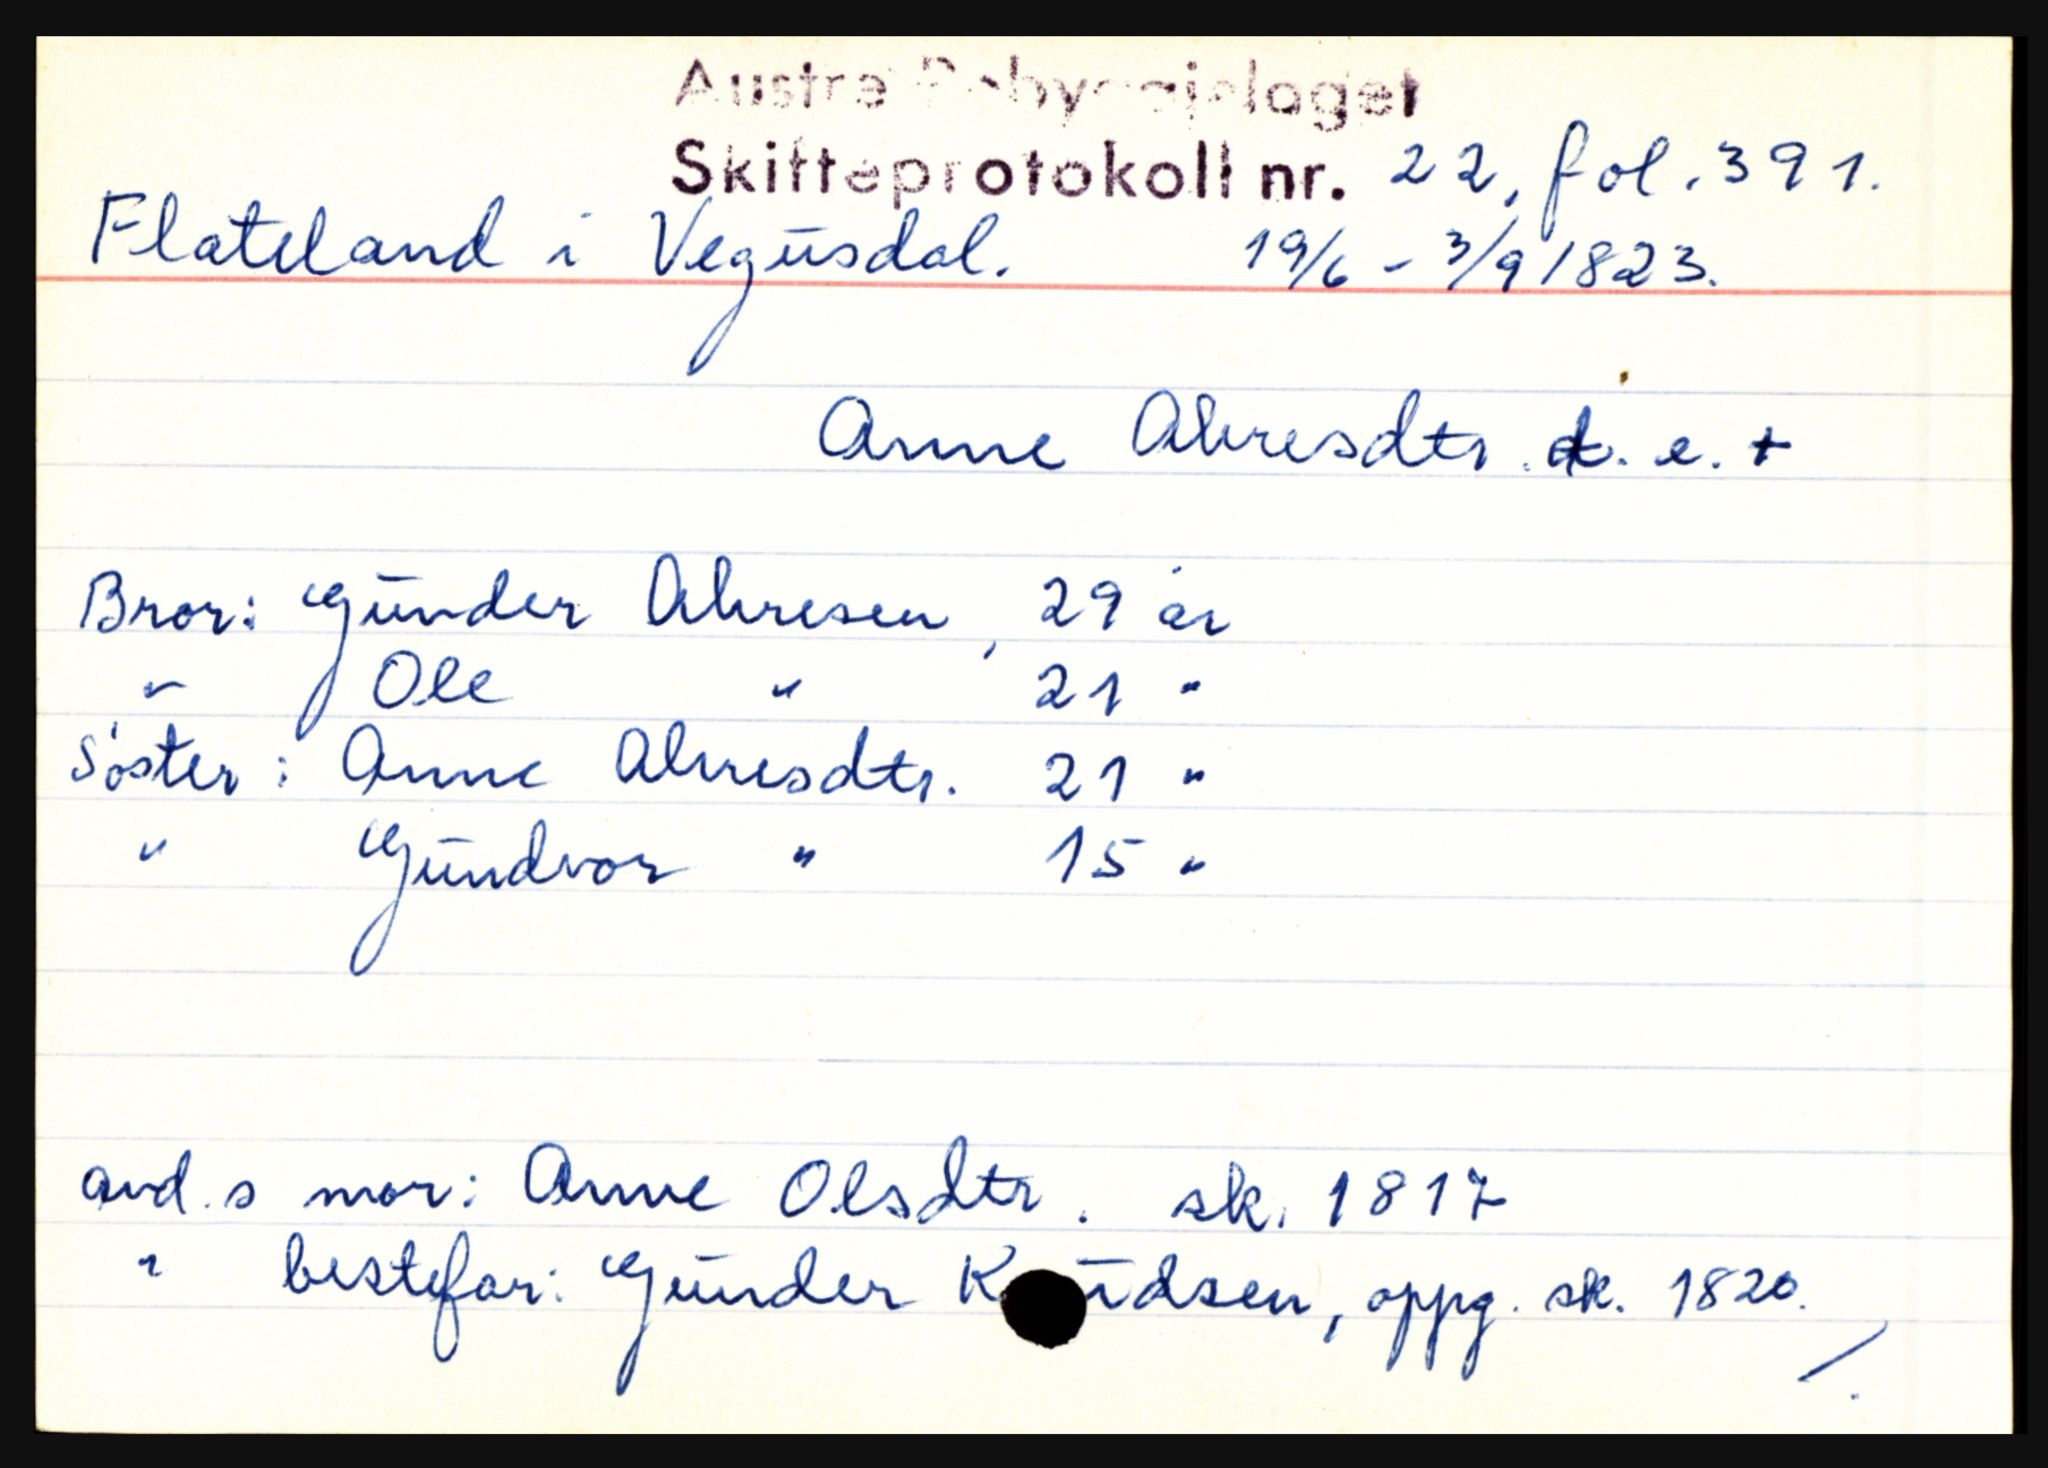 Austre Robyggjelaget
Skifteprotokoll nr. 22, fol. 391.
Flateland i Vegusdal. 19/6 - 3/9 1823.
Anne Alvresdtr. d. e. +
Bror: Gunder Alvresen, 29 år
" Ole " 21 "
Søster: Anne Alvresdtr. 21 "
" Gundvor " 15 "
avd. s mor: Anne Olsdtr. sk. 1817
" bestefar: Gunder Knudsen, oppg. sk. 1820.